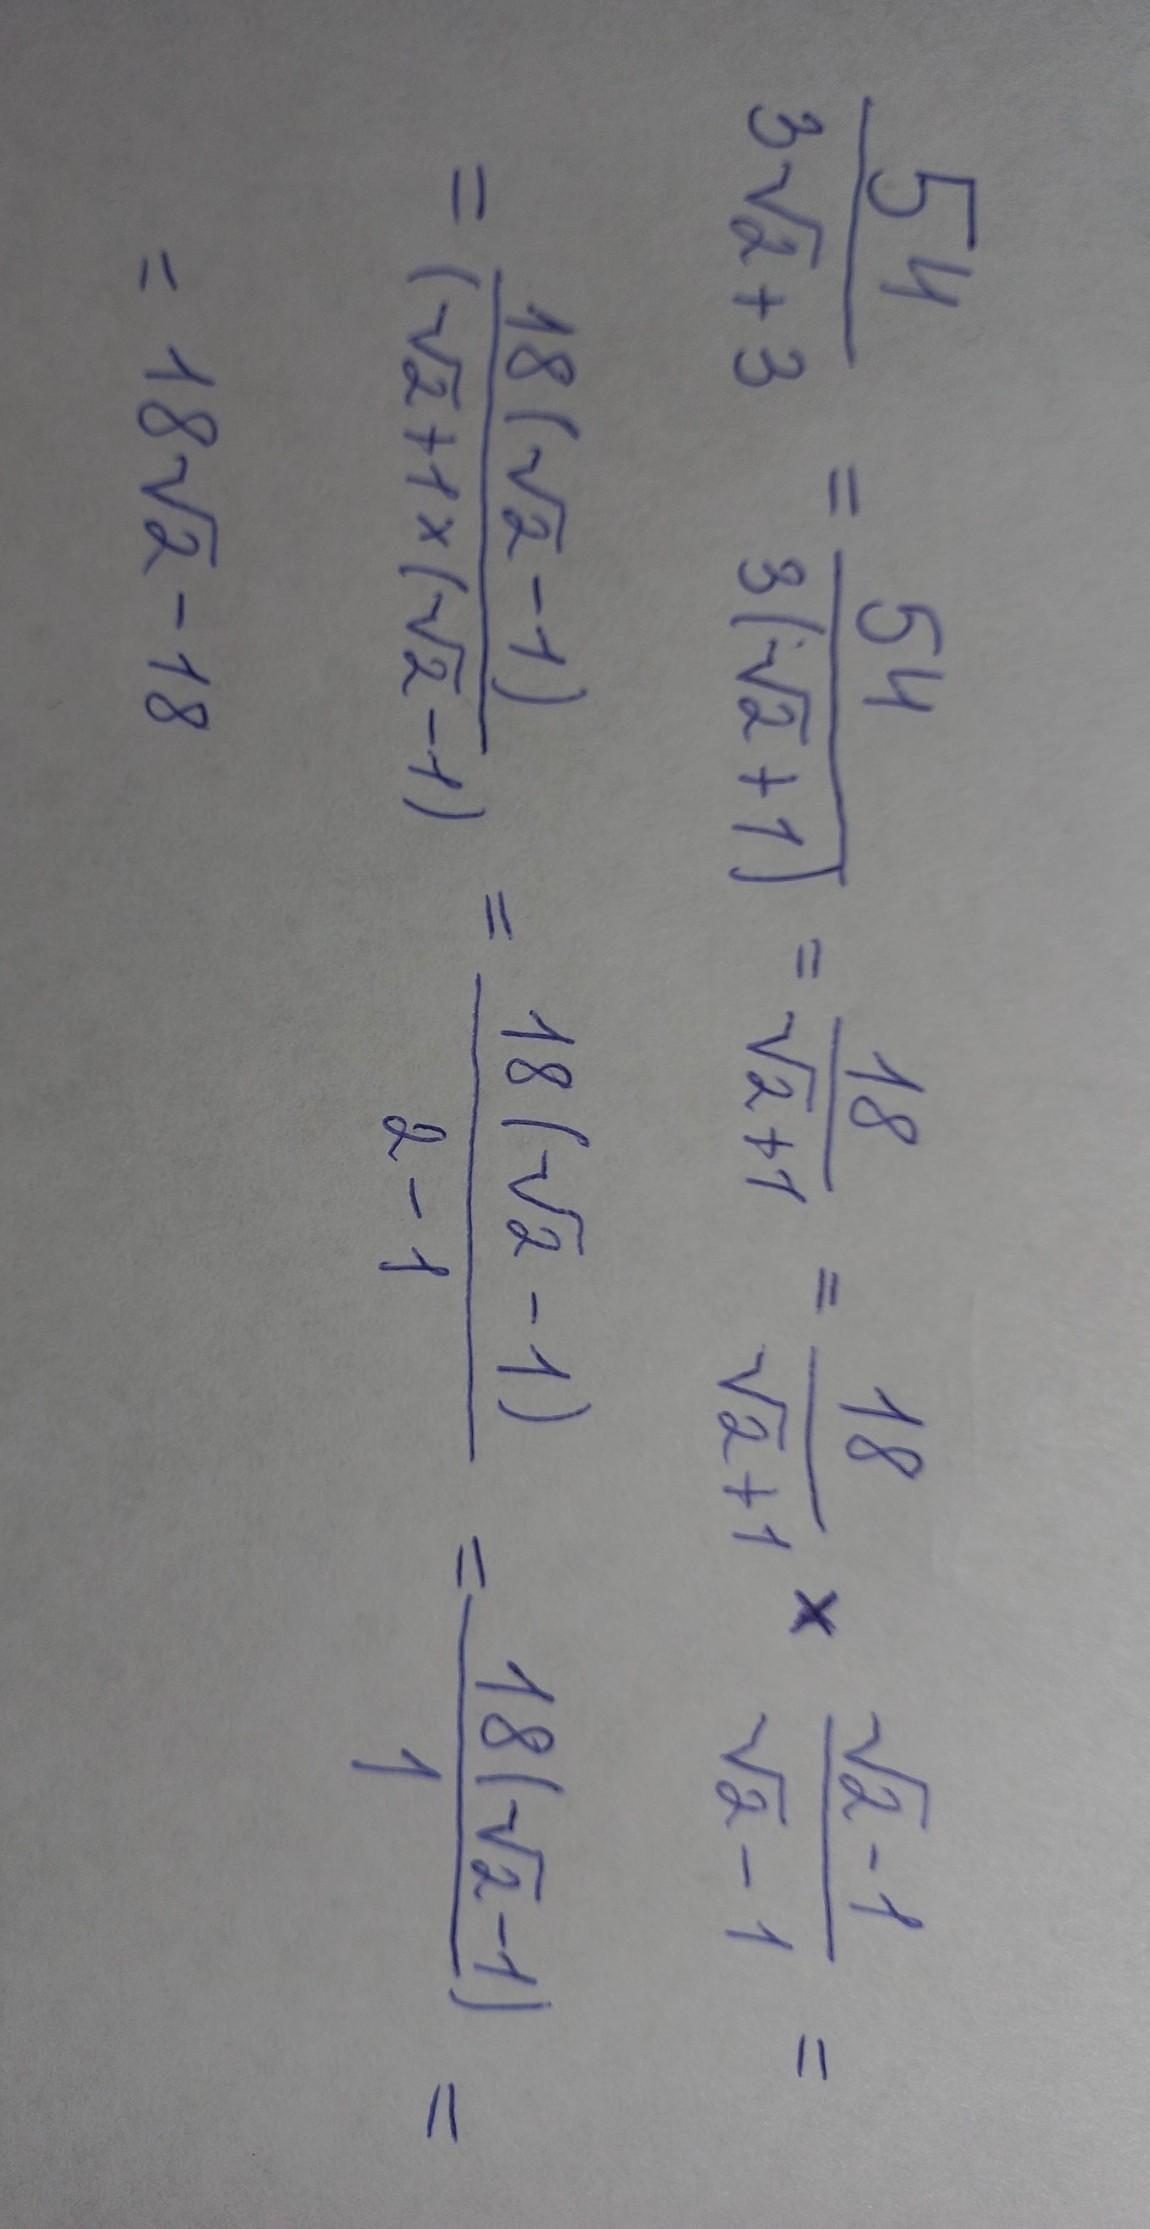 54/(3√2+3) = 54/(3(√2+1)) = 18/(√2+1) = 18/(√2+1) × (√2-1)/(√2-1) =
= 18(√2-1)/(√2+1×(√2-1) = 18(√2-1)/(2-1) = 18(√2-1)/1 =
= 18√2-18